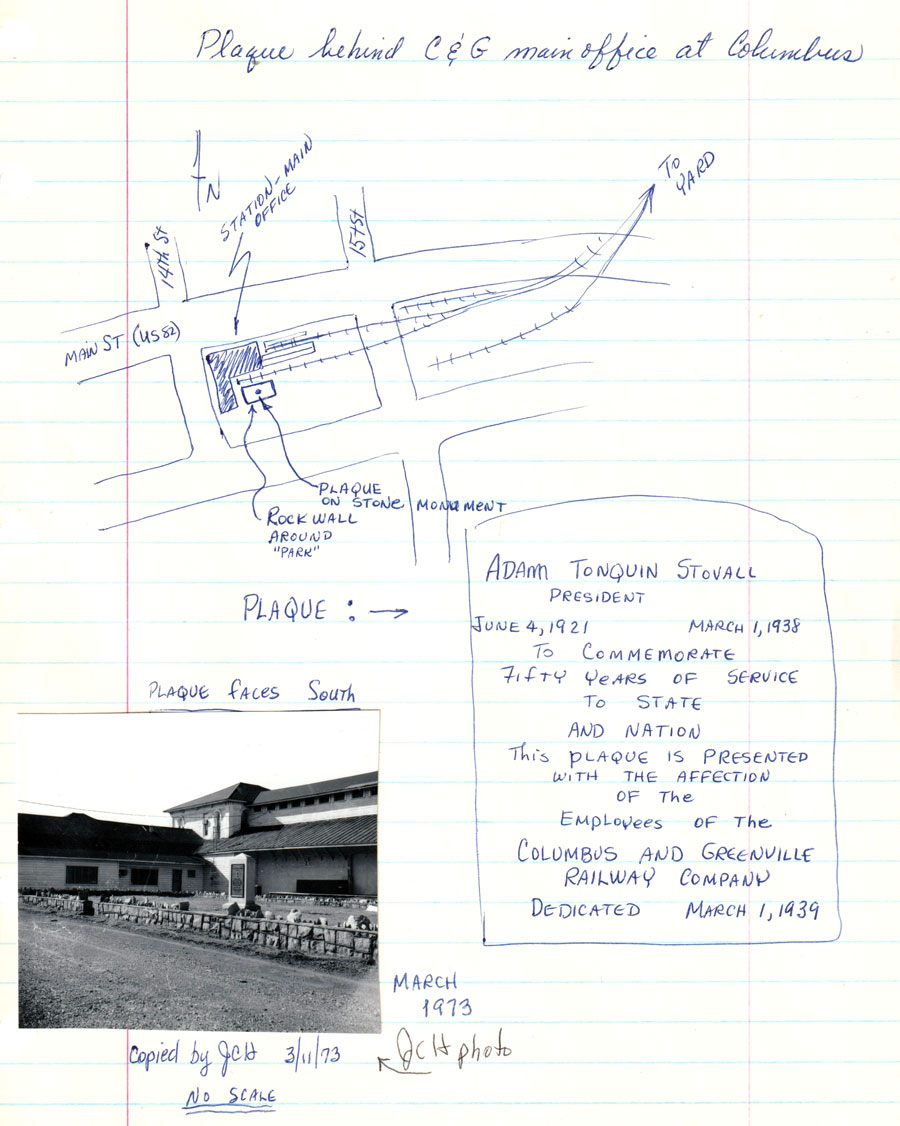 Plaque behind C & G main office at Columbus
N
STATION-MAIN
OFFICE
TO
YARD
14TH ST
15TH ST
MAIN ST (US 82)
PLAQUE
ON STONE MONUMENT
ROCK WALL
AROUND
"PARK"
PLAQUE : →
ADAM TONQUIN STOVALL
PRESIDENT
JUNE 4, 1921 MARCH 1, 1938
TO COMMEMORATE
FIFTY YEARS OF SERVICE
TO STATE
AND NATION
THIS PLAQUE IS PRESENTED
WITH THE AFFECTION
OF THE
EMPLOYEES OF THE
COLUMBUS AND GREENVILLE
RAILWAY COMPANY
DEDICATED MARCH 1, 1939
PLAQUE FACES SOUTH
MARCH
1973
JCH photo
Copied by JCH 3/11/73
NO SCALE